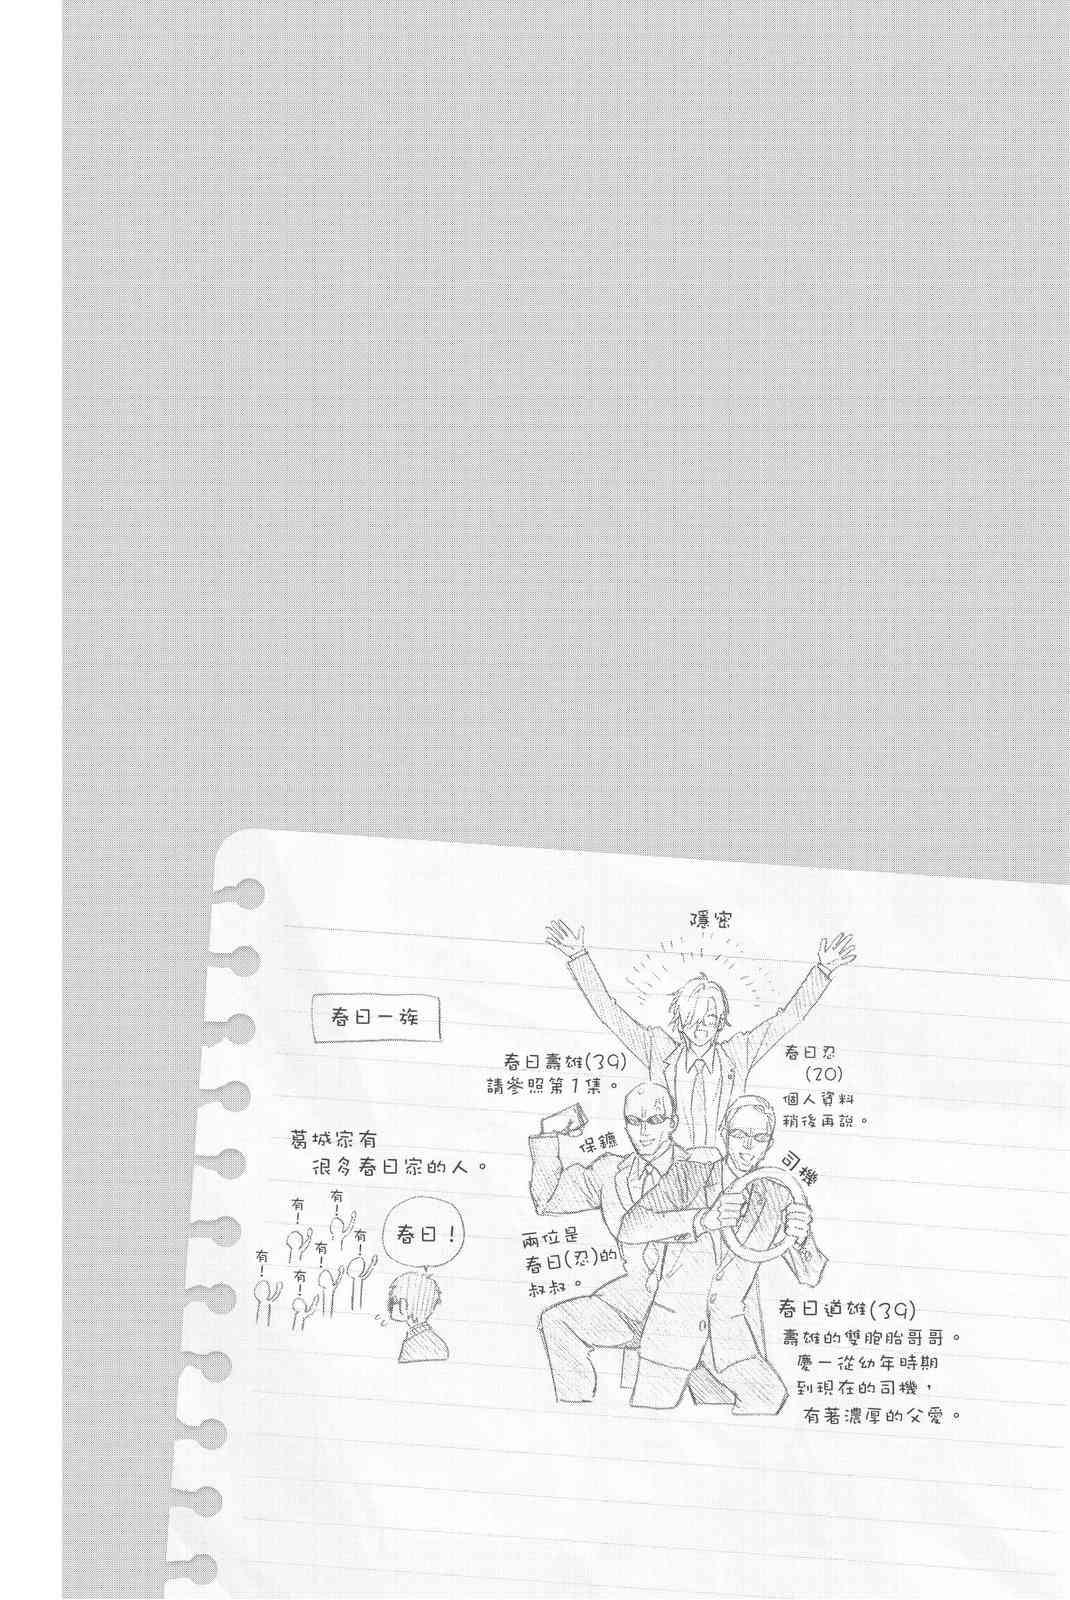 隱密
春日一族
春日壽雄(39)
請參照第1集。
保鑣
春日忍
(20)
個人資料
稍後再說。
司機
葛城家有
很多春日家的人。
春日！
有！
有！
有！
有！
有！
有！
兩位是
春日(忍)的
叔叔。
春日道雄(39)
壽雄的雙胞胎哥哥。
慶一從幼年時期
到現在的司機，
有著濃厚的父愛。